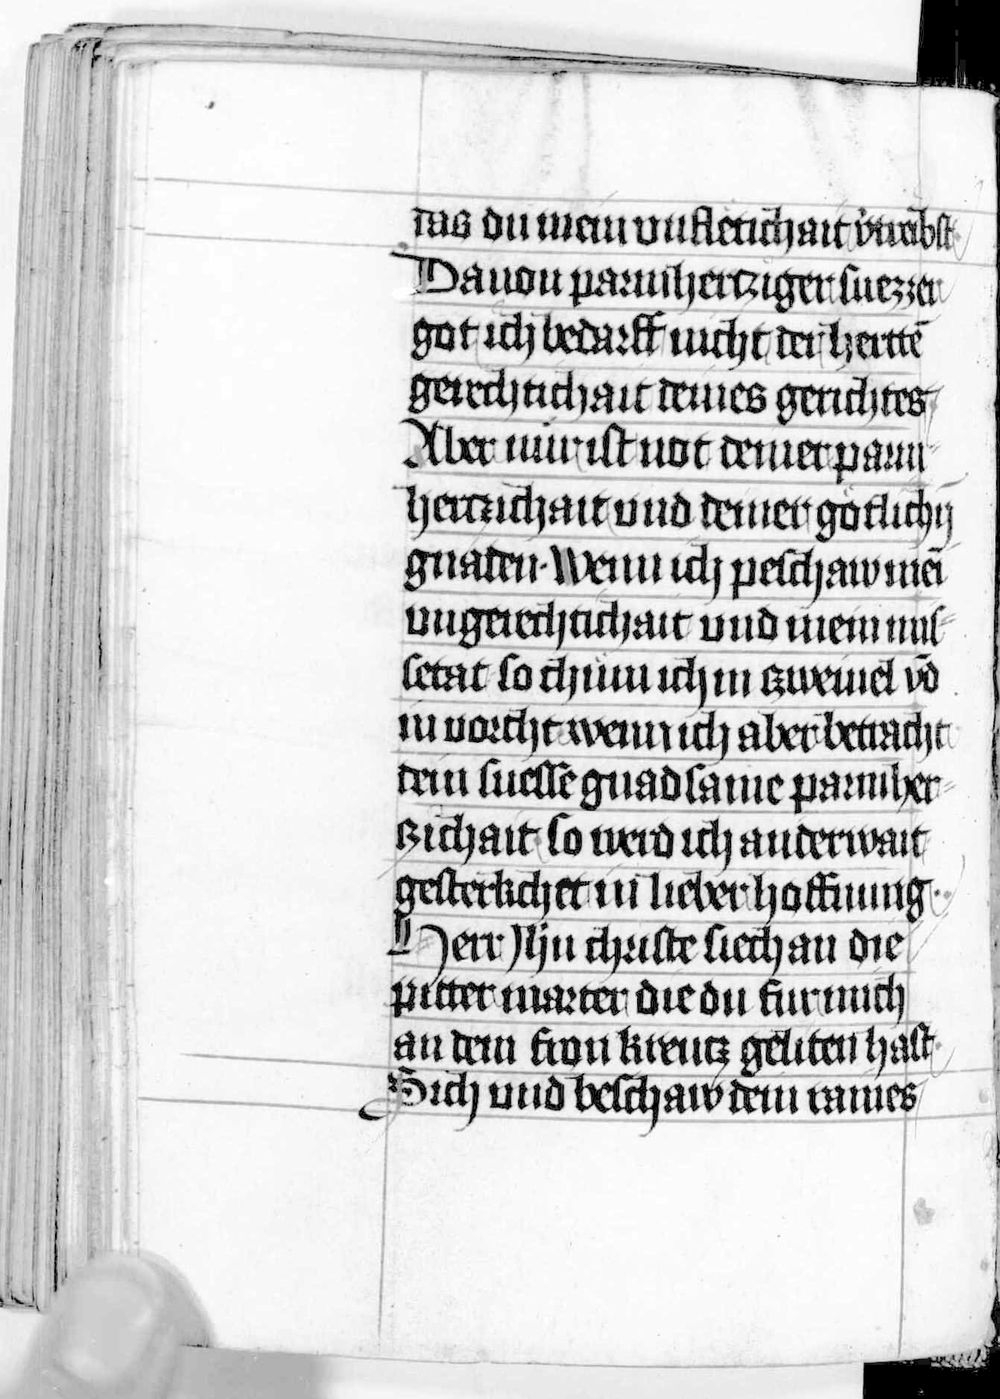 das du mein unfletichait v̉treibst
Dauon parmhertziger suezzer
got ich bedarff nicht der herttē
gerechtichait deines gerichtes
Aber mir ist not deiner parm-
hertzichait vnd deiner gôtlichn̄
gnaden· Wenn ich peschaw meī
vngerechtichait vnd mein mis-
setat so chum ich in zweiuel vō
in vorcht wenn ich aber betracht
dein suesse gnadsame parmher-
zichait so werd ich anderwait
gesterkchet in lieber hoffnung·
Herr Jhu christe siech an die
pitter marter die du fur mich
an dem fron kreutz geliten hast·
Sich vnd beschaw dein raines